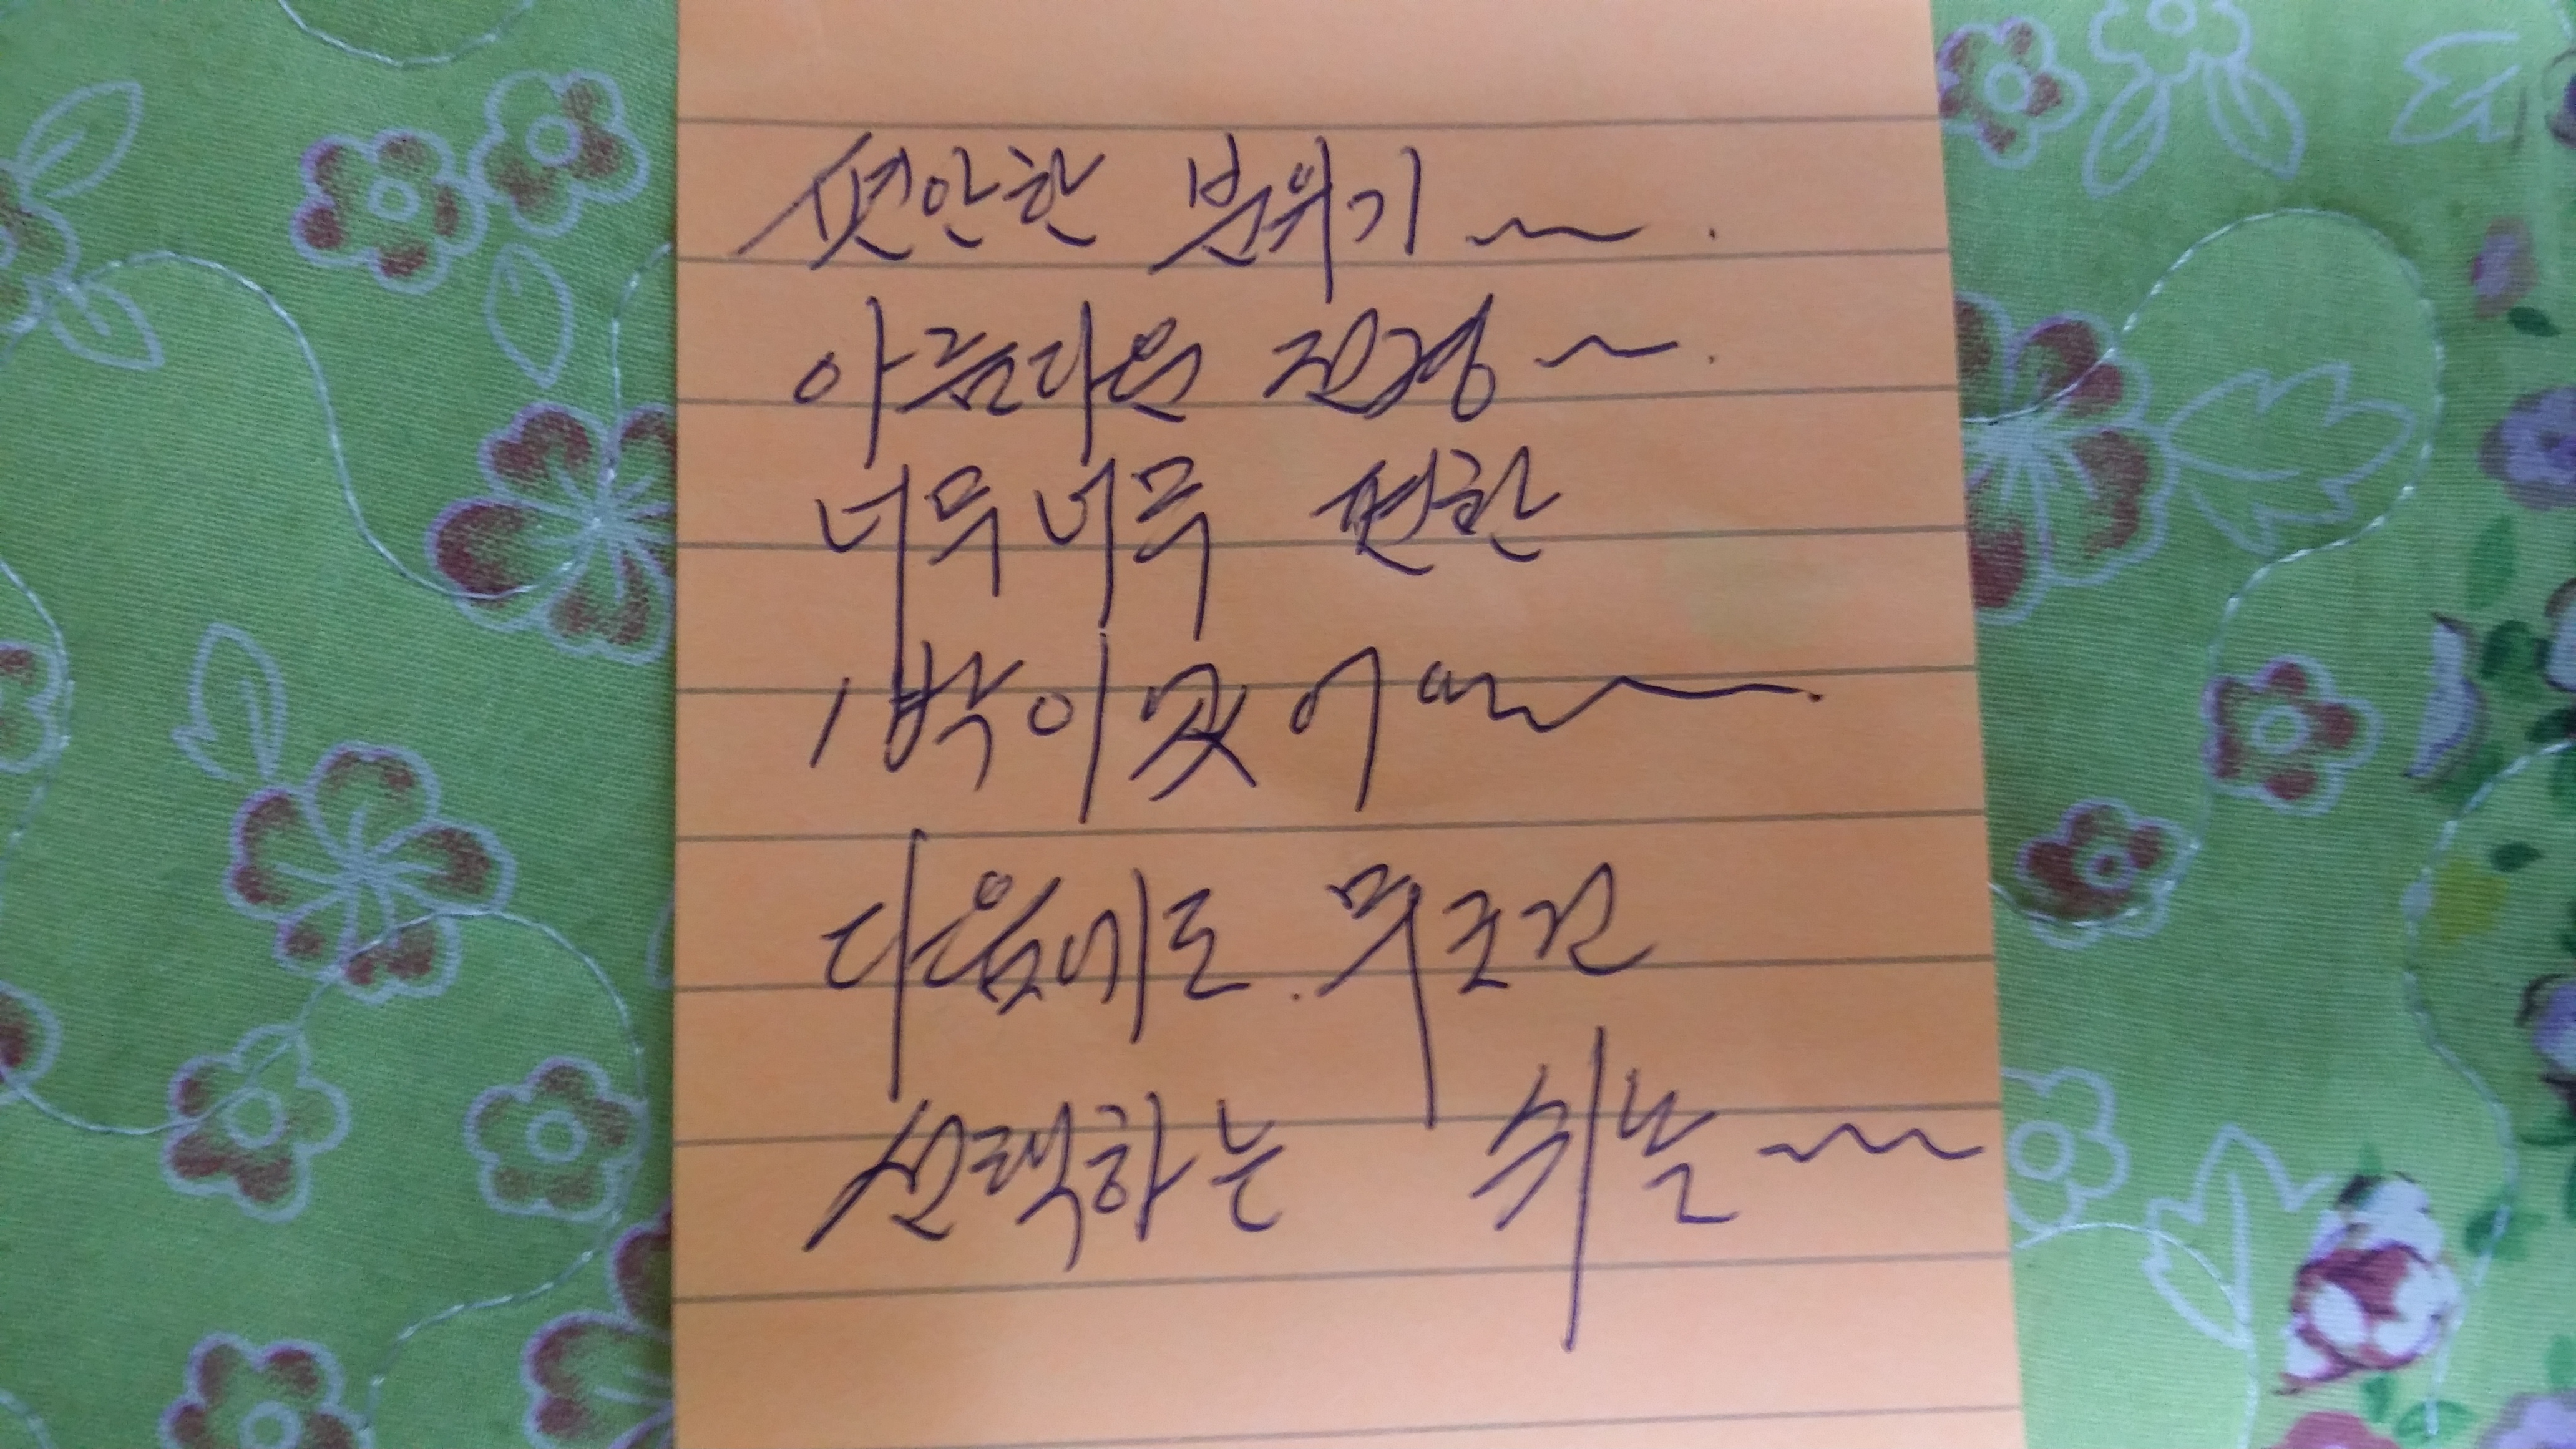 편안한 분위기 ~.
아름다운 전경 ~.
너무너무 편한
1박이 였어 ~.
다음에도. 무조건
선택하는 쉬는 ~